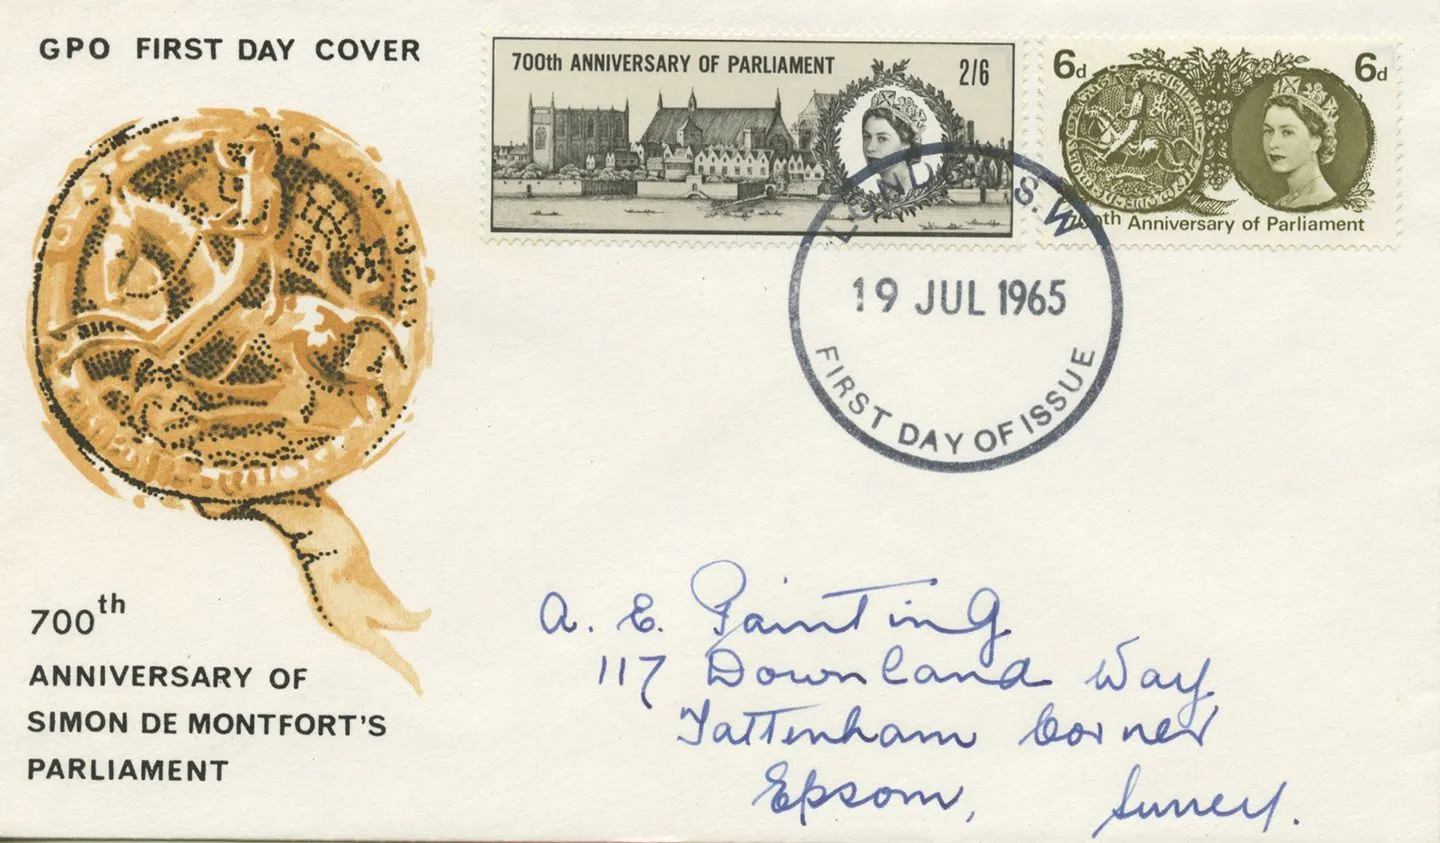 GPO FIRST DAY COVER
700th ANNIVERSARY OF PARLIAMENT
2/6
6d
6d
700th Anniversary of Parliament
LONDON S.W.
19 JUL 1965
FIRST DAY OF ISSUE
700th
ANNIVERSARY OF
SIMON DE MONTFORT'S
PARLIAMENT
A. E. Painting
117 Downland Way
Tattenham Corner
Epsom, Surrey.